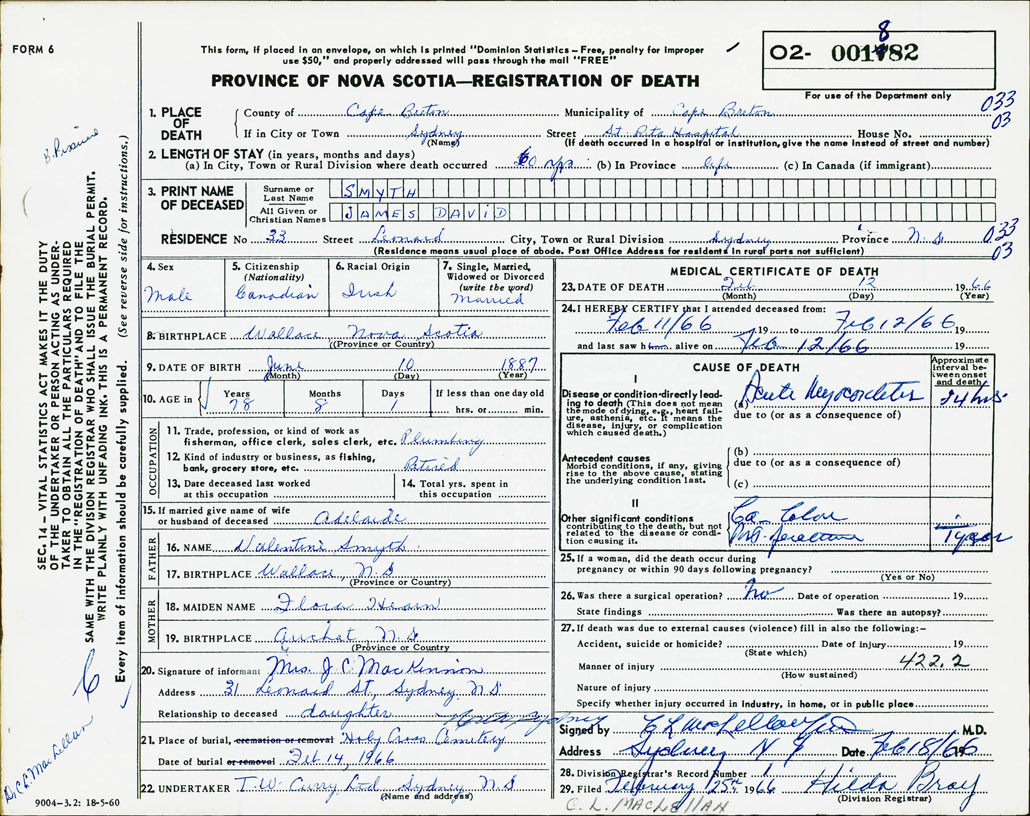 FORM 6
This form, if placed in an envelope, on which is printed "Dominion Statistics – Free, penalty for improper
use $50," and properly addressed will pass through the mail "FREE"
PROVINCE OF NOVA SCOTIA—REGISTRATION OF DEATH
O2- 001882
For use of the Department only
033
03
1. PLACE OF DEATH
County of Cape Breton Municipality of Cape Breton
If in City or Town Sydney Street St. Rita Hospital House No.
(Name) (If death occurred in a hospital or institution, give the name instead of street and number)
2. LENGTH OF STAY (in years, months and days)
(a) In City, Town or Rural Division where death occurred 60 yrs (b) In Province life (c) In Canada (if immigrant)
3. PRINT NAME OF DECEASED
Surname or Last Name SMYTH
All Given or Christian Names JAMES DAVID
RESIDENCE No 33 Street Leonard City, Town or Rural Division Sydney Province N.S 033
03
(Residence means usual place of abode. Post Office Address for residents in rural parts not sufficient)
4. Sex Male
5. Citizenship (Nationality) Canadian
6. Racial Origin Irish
7. Single, Married, Widowed or Divorced (write the word) Married
8. BIRTHPLACE Wallace Nova Scotia
(Province or Country)
9. DATE OF BIRTH June 10 1887
(Month) (Day) (Year)
10. AGE in Years 78 Months 8 Days 1 If less than one day old hrs. or min.
OCCUPATION
11. Trade, profession, or kind of work as
fisherman, office clerk, sales clerk, etc. Plumbing
12. Kind of industry or business, as fishing,
bank, grocery store, etc. Retired
13. Date deceased last worked at this occupation
14. Total yrs. spent in this occupation
15. If married give name of wife
or husband of deceased Adelaide
FATHER
16. NAME Valentine Smyth
17. BIRTHPLACE Wallace, N.S
(Province or Country)
MOTHER
18. MAIDEN NAME Flora Hearn
19. BIRTHPLACE Arichat, N.S
(Province or Country)
20. Signature of informant Mrs. J. C. MacKinnon
Address 31 Leonard St, Sydney N.S
Relationship to deceased daughter
21. Place of burial, cremation or removal Holy Cross Cemetery
Date of burial or removal Feb. 14, 1966
22. UNDERTAKER T. W. Curry Ltd Sydney N.S
(Name and address)
9004–3.2: 18-5-60
MEDICAL CERTIFICATE OF DEATH
23. DATE OF DEATH Feb 12 1966
(Month) (Day) (Year)
24. I HEREBY CERTIFY that I attended deceased from:
Feb 11/66 19 to Feb 12/66 19
and last saw him alive on Feb 12/66 19
CAUSE OF DEATH
Approximate interval between onset and death
I
Disease or condition directly leading to death (This does not mean the mode of dying, e.g., heart failure, asthenia, etc. It means the disease, injury, or complication which caused death.)
(a) Acute Myocarditis 24 hrs.
due to (or as a consequence of)
Antecedent causes
Morbid conditions, if any, giving rise to the above cause, stating the underlying condition last.
(b)
due to (or as a consequence of)
(c)
II
Other significant conditions contributing to the death, but not related to the disease or condition causing it.
Ca- Colon
1 year
25. If a woman, did the death occur during
pregnancy or within 90 days following pregnancy?
(Yes or No)
26. Was there a surgical operation? No Date of operation 19
State findings Was there an autopsy?
27. If death was due to external causes (violence) fill in also the following:–
Accident, suicide or homicide? Date of injury 19
(State which)
Manner of injury 422.2
(How sustained)
Nature of injury
Specify whether injury occurred in industry, in home, or in public place
Signed by C L MacLellan M.D.
Address Sydney N S Date Feb 18/66 19
28. Division Registrar's Record Number 1
29. Filed February 25th 1966 Hilda Bray
(Division Registrar)
C. L. MACLELLAN
SEC. 14 – VITAL STATISTICS ACT MAKES IT THE DUTY
OF THE UNDERTAKER OR PERSON ACTING AS UNDER-
TAKER TO OBTAIN ALL THE PARTICULARS REQUIRED
IN THE "REGISTRATION OF DEATH" AND TO FILE THE
SAME WITH THE DIVISION REGISTRAR WHO SHALL ISSUE THE BURIAL PERMIT.
WRITE PLAINLY WITH UNFADING INK. THIS IS A PERMANENT RECORD.
Every item of information should be carefully supplied. (See reverse side for instructions.)
C
Dr C L MacLellan